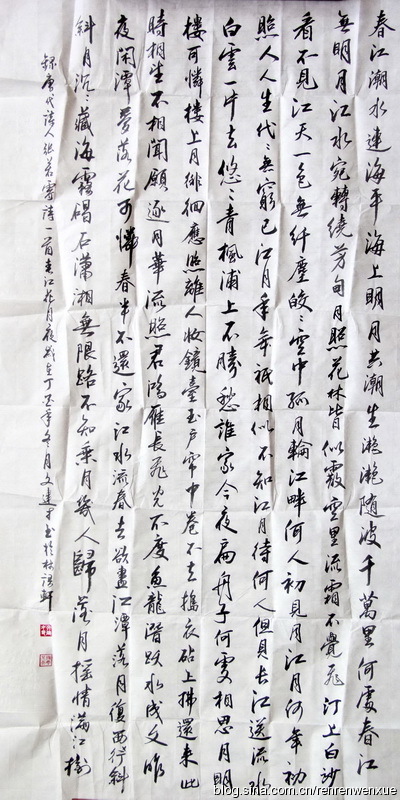 春江潮水連海平海上明月共潮生灧灧随波千萬里何處春江
無明月江水宛轉繞芳甸月照花林皆似霰空里流霜不覺飛汀上白沙
看不見江天一色無纤塵皎ミ空中孤月輪江畔何人初見月江月何年初
照人人生代ミ無窮已江月年年祇相似不知江月待何人但見長江送流水
白雲一片去悠ミ青楓浦上不勝愁誰家今夜扁舟子何處相思月明
樓可憐樓上月徘徊應照離人妝鏡臺玉户帘中卷不去搗衣砧上拂還来此
時相望不相聞願逐月華流照君鴻雁長飛光不度魚龍潛跃水成文昨
夜閑潭夢落花可憐春半不還家江水流春去欲盡江潭落月復西斜
斜月沉ミ藏海霧碣石潇湘無限路不知乘月幾人歸落月摇情滿江樹
錄唐代詩人張若虚詩一首春江花月夜於丁亥年午月文建書於
blog.sina.com.cn/renrenwenxue